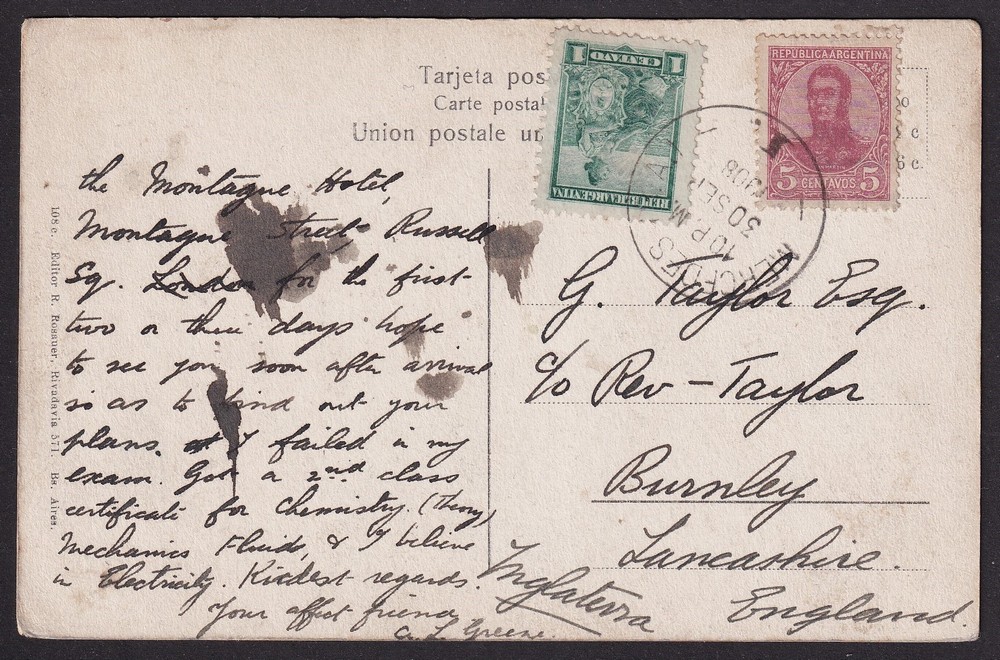 Tarjeta pos
Carte postal
Union postale un
the Montague Hotel,
Montague Street, Russell
Sq. London for the first
two or three days hope
to see you soon after arrival
so as to find out your
plans. I failed in my
exam. Got a 2nd class
certificate for Chemistry. (Theory)
Mechanics Fluids, & I believe
in Electricity. Kindest regards.
Your affect friend
A. L. Greene.
108 c. Editor R. Rosauer, Rivadavia 571. Bs. Aires.
1
CENTAVO
REPUBLICA ARGENTINA
REPUBLICA ARGENTINA
5 CENTAVOS 5
MERCEDES
10 P.M
30 SET
1908
o
c
6 c.
G. Taylor Esq.
c/o Rev - Taylor
Burnley
Lancashire.
England.
Inglaterra